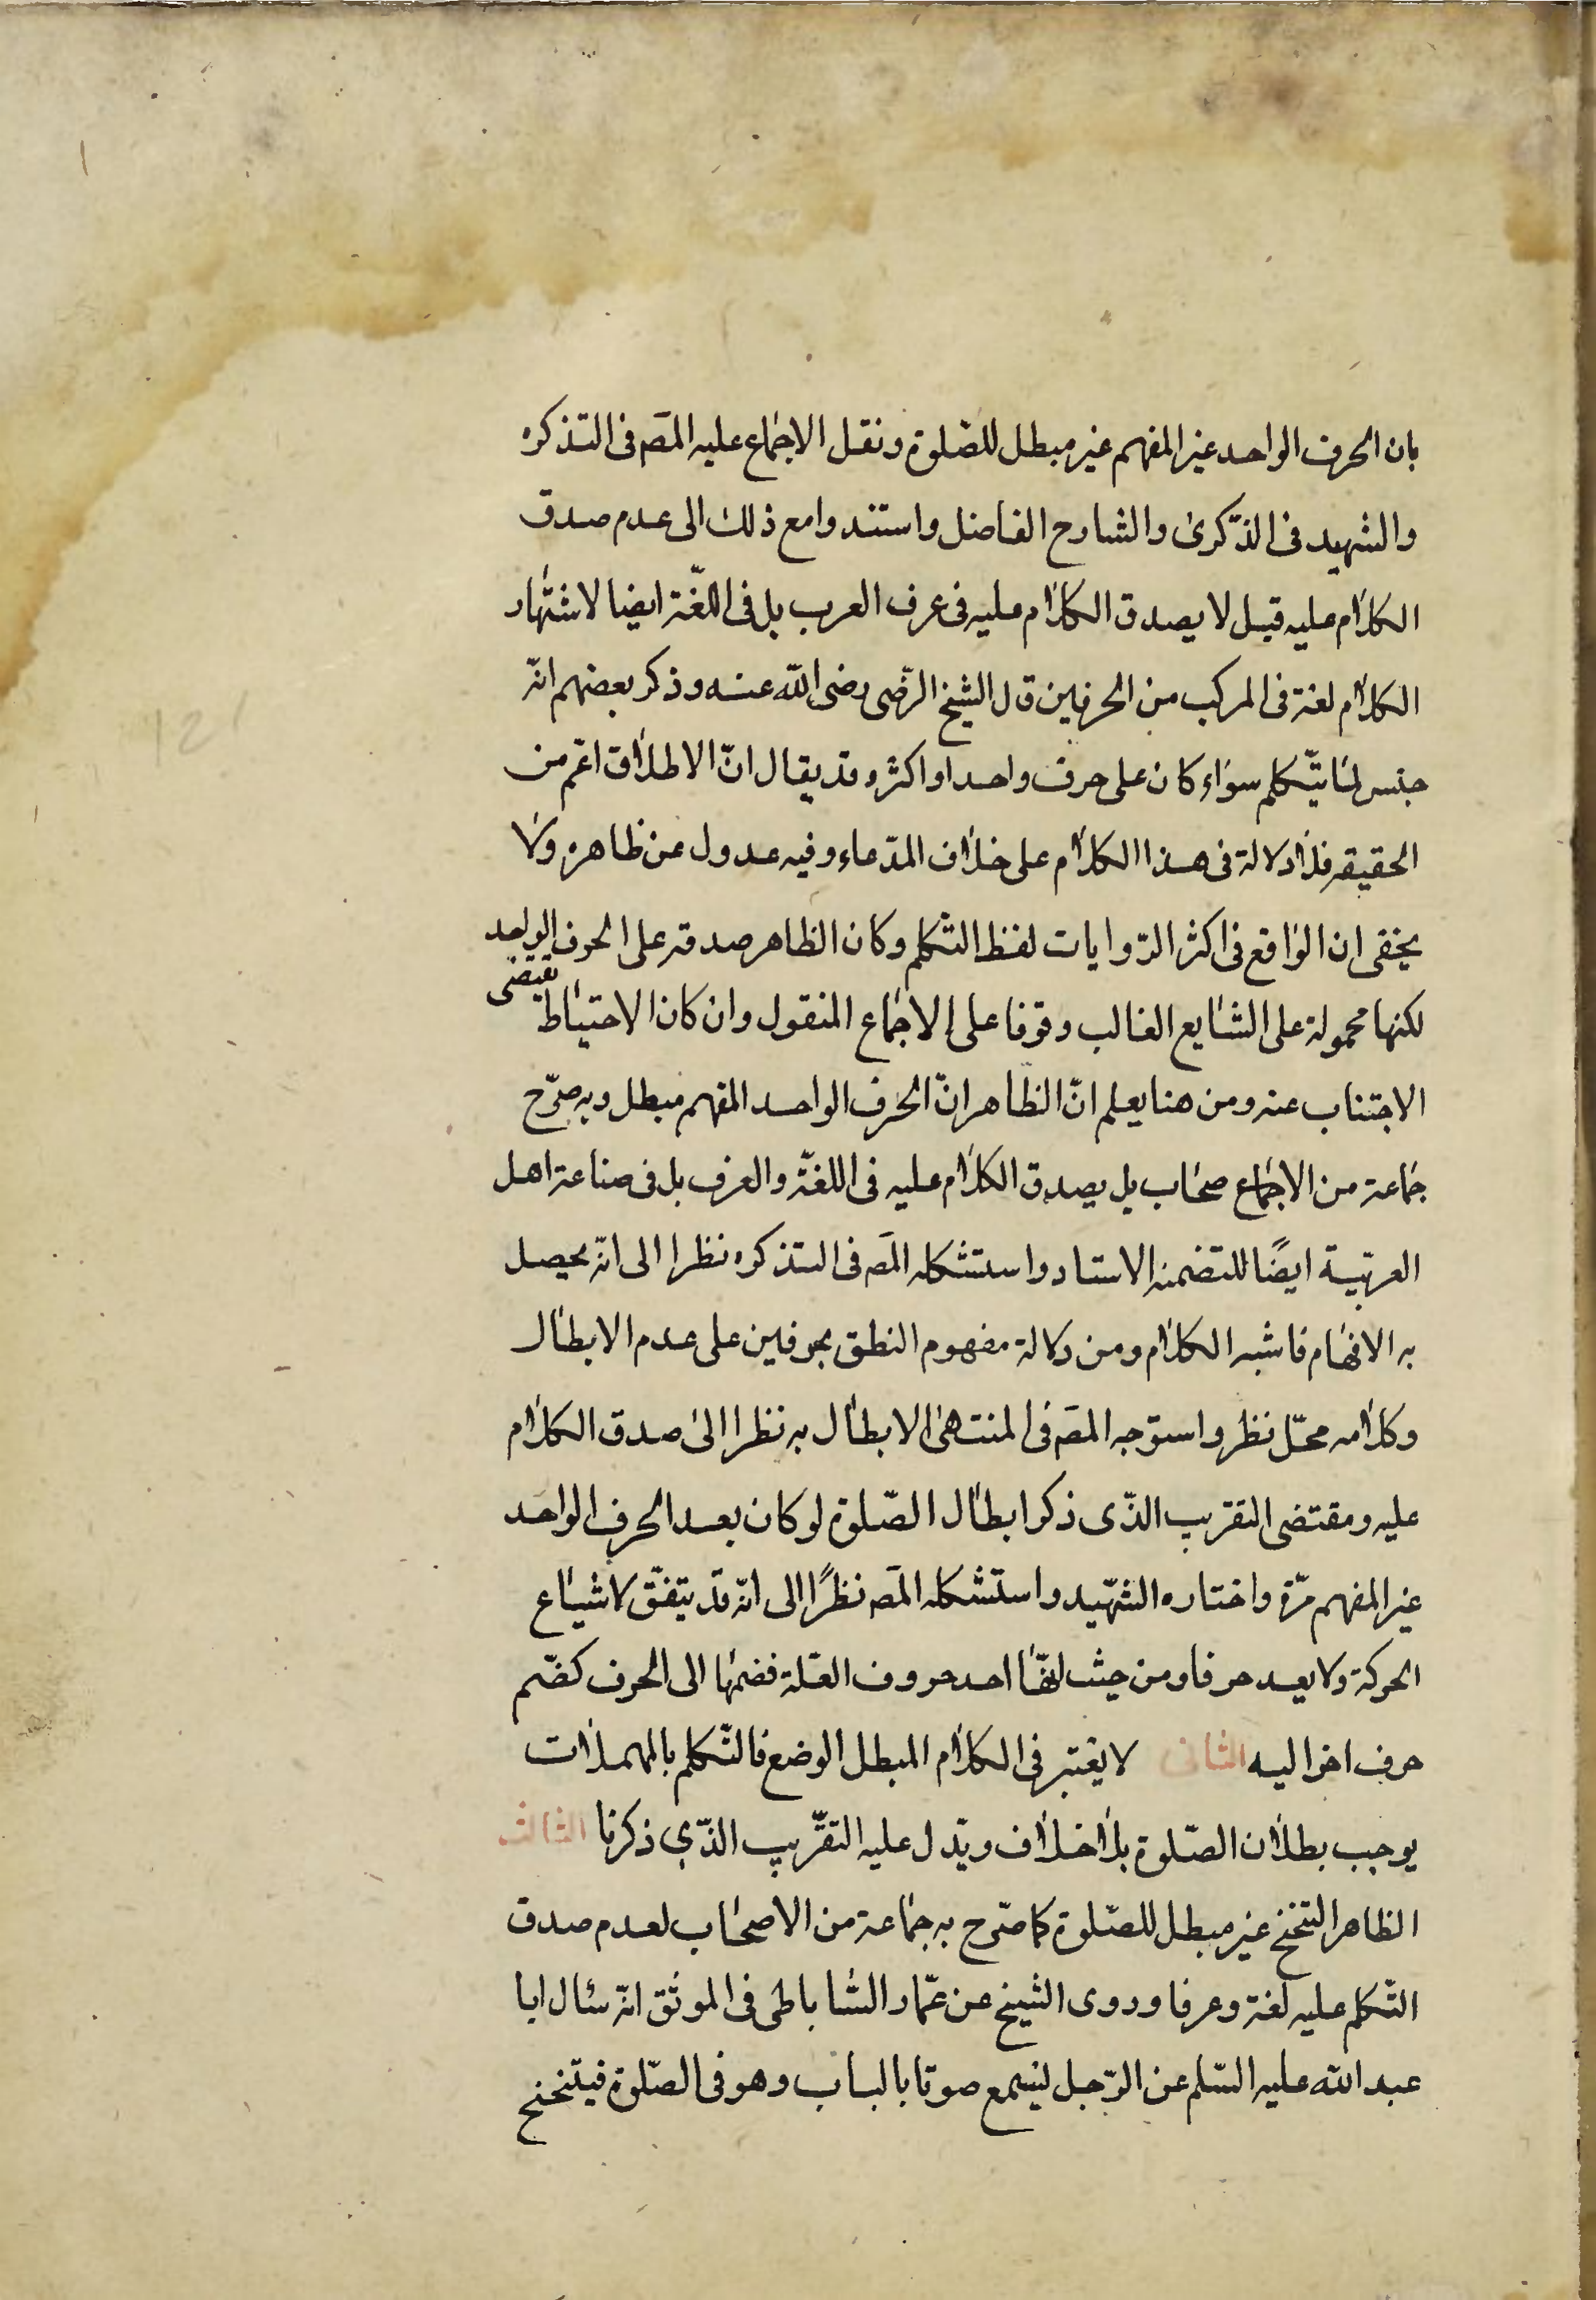 بان الحرف الواحد غير المفهم غير مبطل للصّلوة ونقل الاجماع عليه المصَ فى التذكره
والشهيد فى الذّكرىٰ والشارح الفاضل واستندوا مع ذلك الى عدم صدق
الكلام عليه قيل لا يصدق الكلام عليه فى عرف العرب بل فى اللّغة ايضا لاشتهار
الكلام لغة فى المركب من الحرفين قال الشيخ الرّضى رضى الله عنه وذكر بعضهم انّه
جنس لما يتّكلم سواء كان على حرف واحد او اكثر وقد يقال انّ الاطلاق اعّم من
الحقيقه فلا دلالة فى هذا الكلام على خلاف المدّعاء وفيه عدول عن ظاهره ولا
يخفى ان الواقع فى اكثر الرّوايات لفظ التّكلم وكان الظاهر صدقه على الحرف الواحد
لكنها محمولة على الشايع الغالب وقوفا على الاجماع المنقول وان كان الاحتياط يقتضى
الاجتناب عنه ومن هنا يعلم انّ الظاهر انّ الحرف الواحد المفهم مبطل وبه صرّح
جماعة من الاجماع صحاب بل يصدق الكلام عليه فى اللغّة والعرف بل فى صناعة اهل
العربّية ايضًا للتضمنه الاسناد واستشكله المصَ فى التذكره نظرا الى انّه يحصل
به الافهام فاشبه الكلام ومن دلالة مفهوم النطق بحرفين على عدم الابطال
وكلامه محّل نظر واستوجه المصَ فى المنتهىٰ الابطال به نظرا الىٰ صدق الكلام
عليه ومقتضى التقريب الذّى ذكر ابطال الصّلوة لو كان بعد الحرف الواحد
غير المفهم مدّة واختاره الشهّيد واستشكله المصَ نظرًا الى انّه قد يتفّق لاشياع
الحركة ولا يعد حرفا ومن حيث انهّا احد حروف العّلة فضمّها الى الحرف كضّم
حرف اخر اليه الثانى لا يعتبر فى الكلام المبطل الوضع فالتّكلم بالمهملات
يوجب بطلان الصّلوة بلا خلاف ويدّل عليه التقرّيب الذّى ذكرنا الثالث
الظاهر التنحنح غير مبطل للصّلوة كما صّرح به جماعة من الاصحاب لعدم صدق
التّكلم عليه لغة وعرفا وروى الشيخ عن عمّار السّاباطى فى الموثق انّه سئال ابا
عبد الله عليه السّلم عن الرّجل ليسمع صوتا بالباب وهو فى الصّلوة فيتنحنح